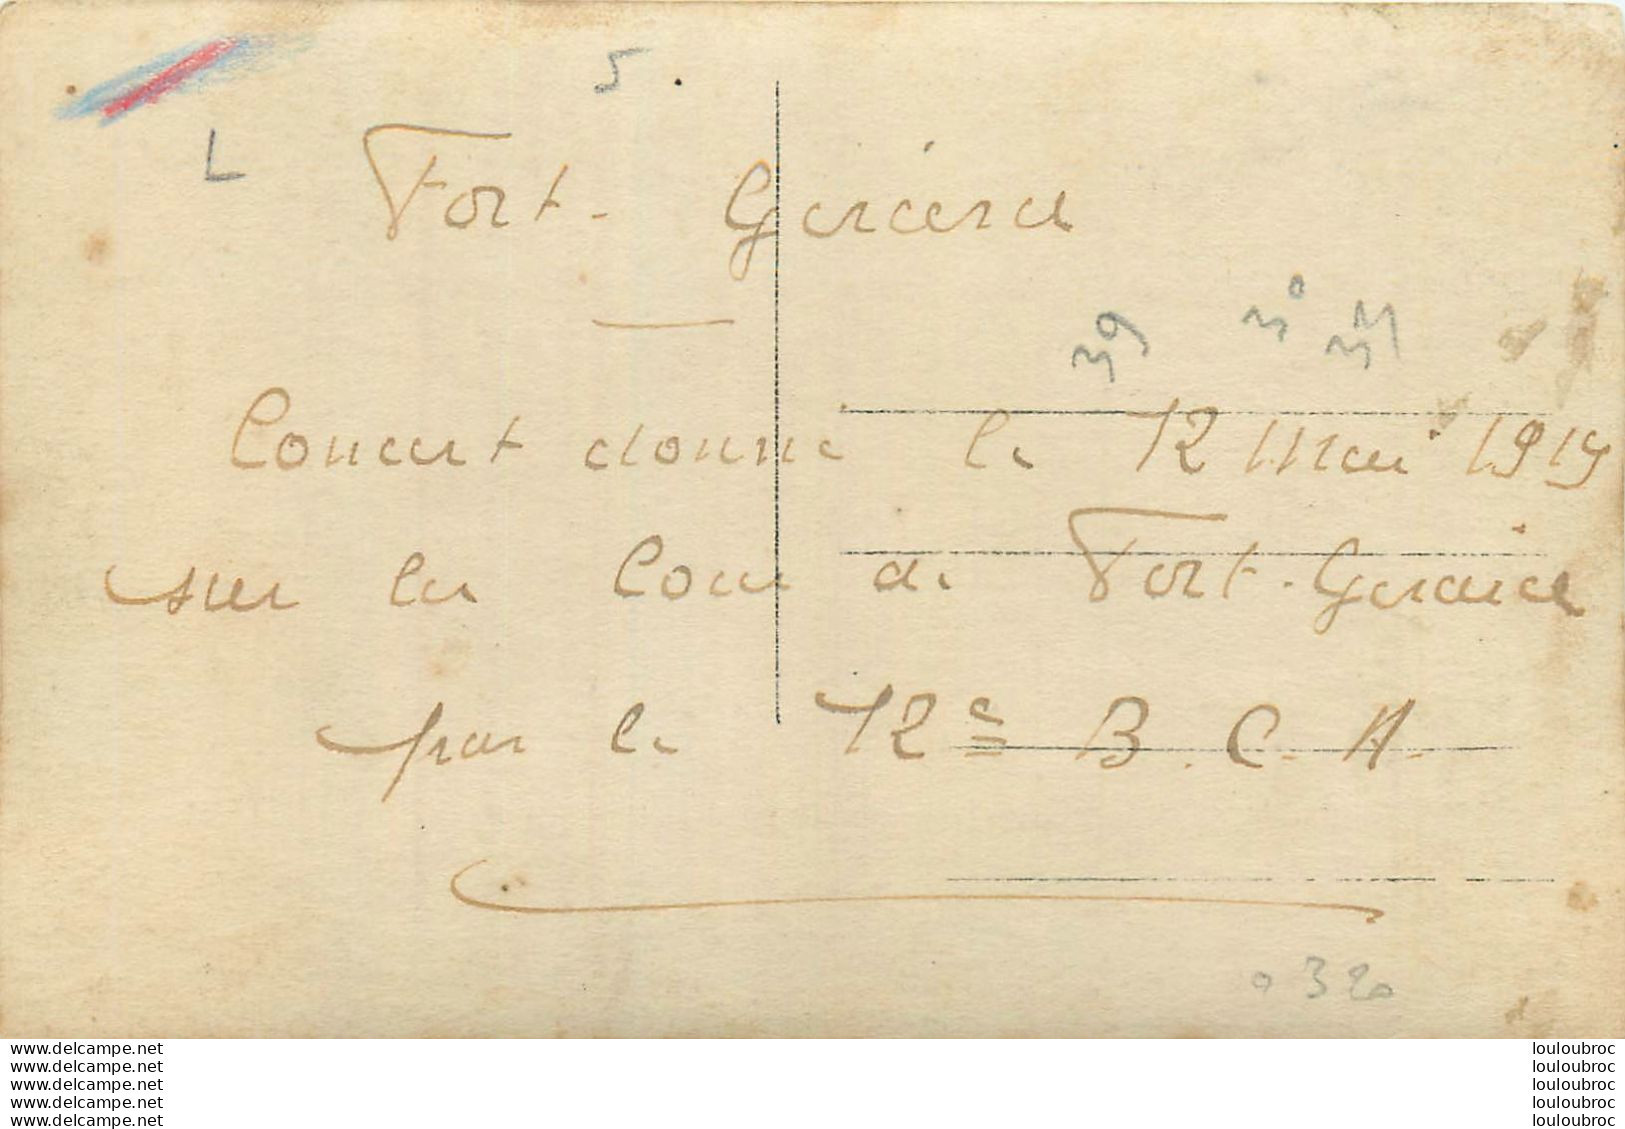 5
L
Fort-Gérard
39 3° 34
Concert donné le 12 Mai 1919
sur la Cour de Fort-Gérard
par le 12e B.C.A.
0320
www.delcampe.net
www.delcampe.net
www.delcampe.net
www.delcampe.net
www.delcampe.net
louloubroc
louloubroc
louloubroc
louloubroc
louloubroc